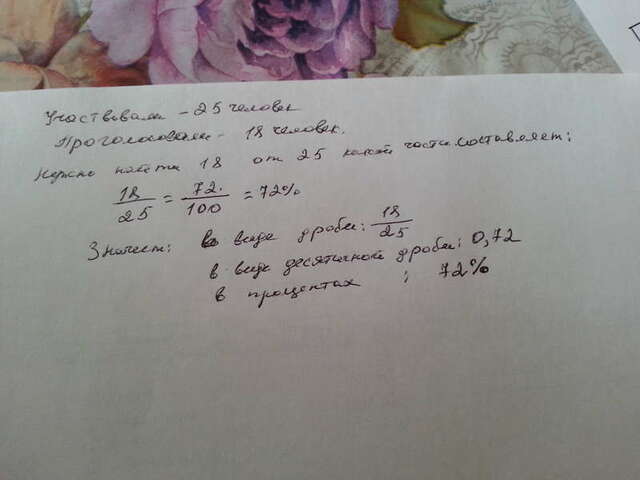 Участвовали - 25 человек
Проголосовали - 18 человек.
Нужно найти 18 от 25 какой части составляет:
18/25 = 72/100 = 72%
Значит: в виде дроби: 18/25
в виде десятичной дроби: 0,72
в процентах : 72%